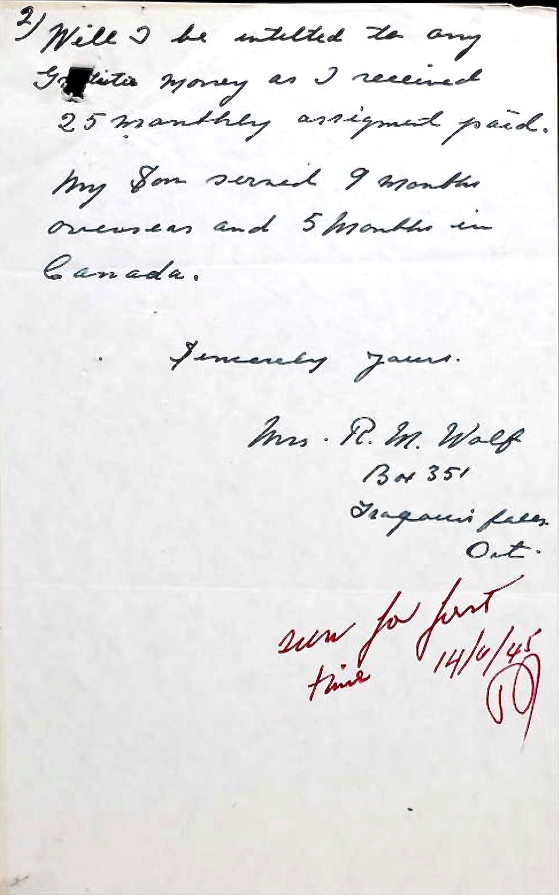 2) Will I be intitted to any
money as I received
25 monthly assigment paid.
My Son served 9 months
overseas and 5 Months in
Canada.
Sincerely yours.
Mrs. R. M. Wolf
Box 351
Iraqouis falls
Ont.
seen for first
time 14/4/45